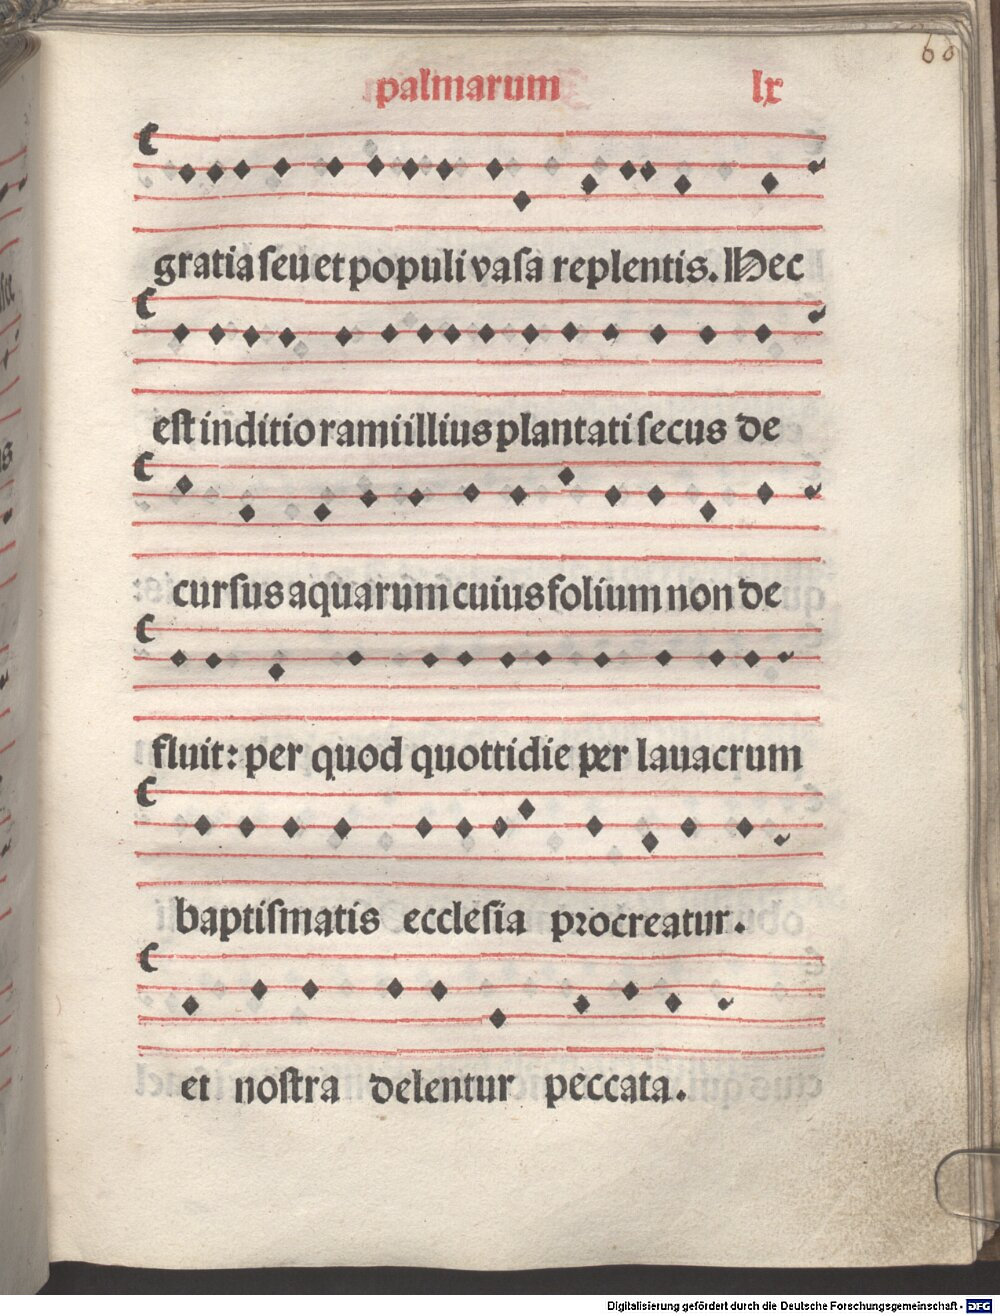 60
palmarum lx
gratia seu et populi vasa replentis. Hec
est inditio rami illius plantati secus de
cursus aquarum cuius folium non de
fluit: per quod quottidie per lauacrum
baptismatis ecclesia procreatur.
et nostra delentur peccata.
Digitalisierung gefördert durch die Deutsche Forschungsgemeinschaft - DFG